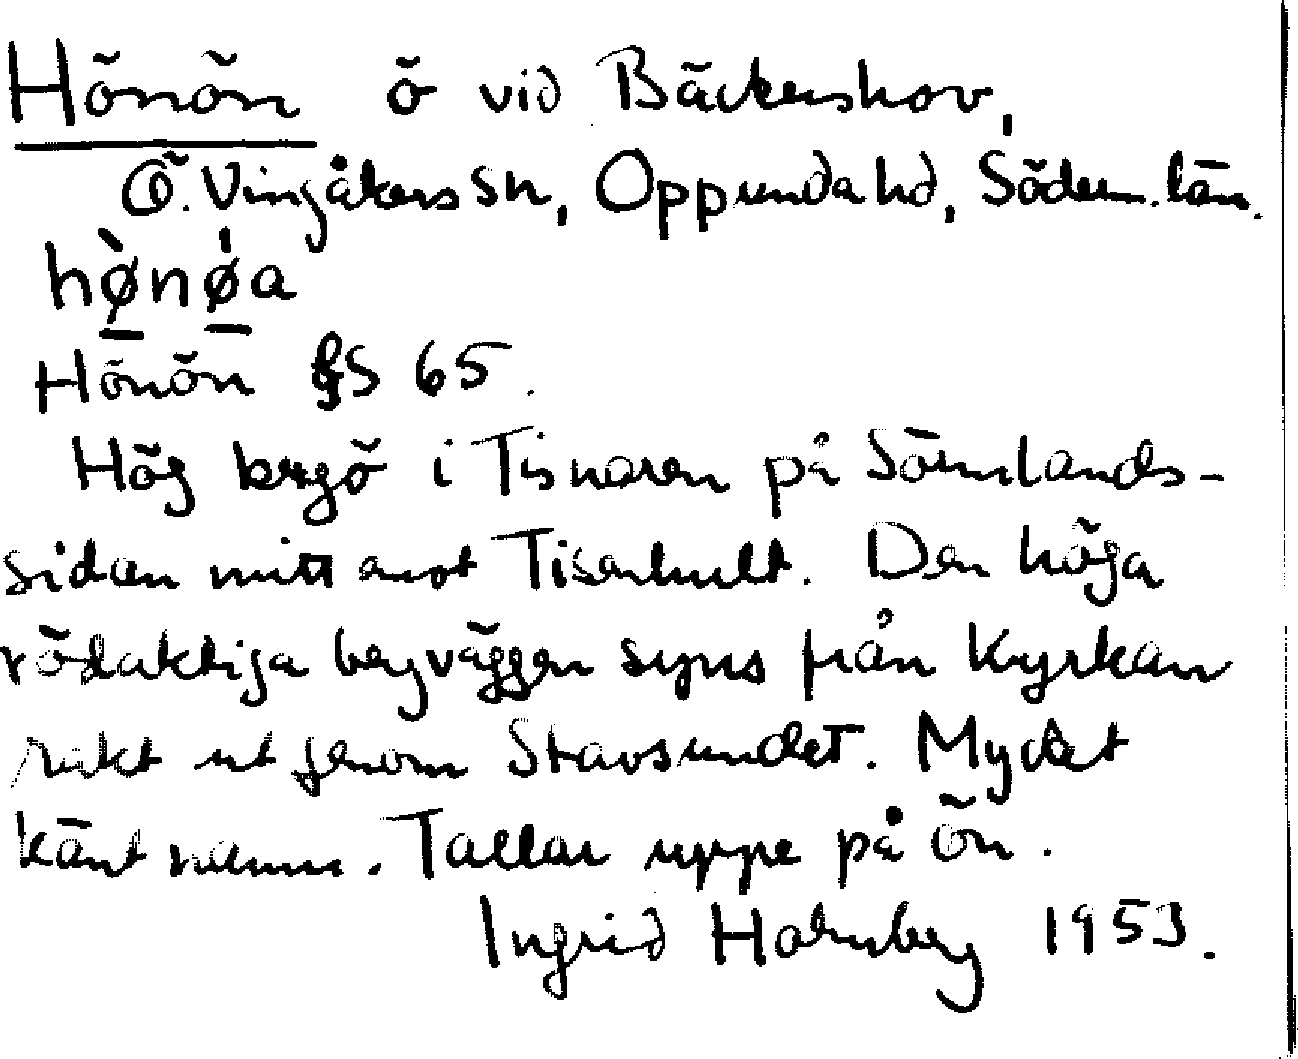 Hönön ö vid Bäckershov,
Ö. Vingåkers sn, Oppunda hd, Söderm. län.
hø̀nǿa
Hönön GS 65.
Hög bergö i Tisnaren på Sörmlands-
sidan mitt emot Tisenhult. Den höga
rödaktiga bergväggen syns från Kyrkan
rakt ut genom Stavsundet. Mycket
känt namn. Tallar uppe på ön.
Ingrid Holmberg 1953.